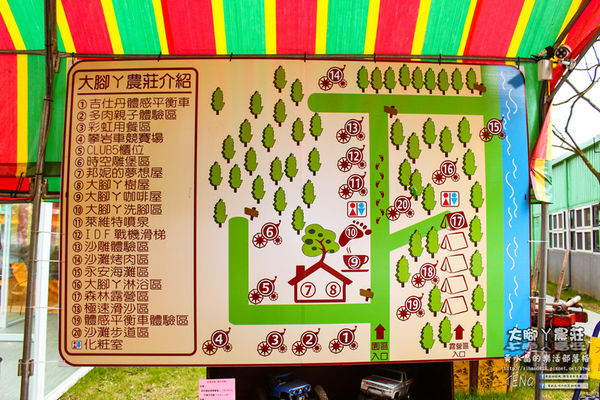 大腳丫農莊介紹
①吉仕丹體感平衡車
②多肉親子體驗區
③彩虹用餐區
④攀岩車競賽場
⑤CLUB5櫃位
⑥時空雕堡區
⑦邦妮的夢想屋
⑧大腳丫樹屋
⑨大腳丫咖啡屋
⑩大腳丫洗腳區
⑪萊維特噴泉
⑫IDF戰機滑梯
⑬沙雕體驗區
⑭沙灘烤肉區
⑮永安海灘區
⑯大腳丫淋浴區
⑰森林露營區
⑱極速滑沙區
⑲體感平衡車體驗區
⑳沙灘步道區
化粧室
⑭
⑬
⑮
⑫
⑯
⑪
⑳
⑰
⑥
⑩
⑨
⑱
⑤
⑦ ⑧
⑲
④
③
②
①
園區
入口
露營區
入口
大腳丫農莊
黃水晶的樂活部落格
TENG